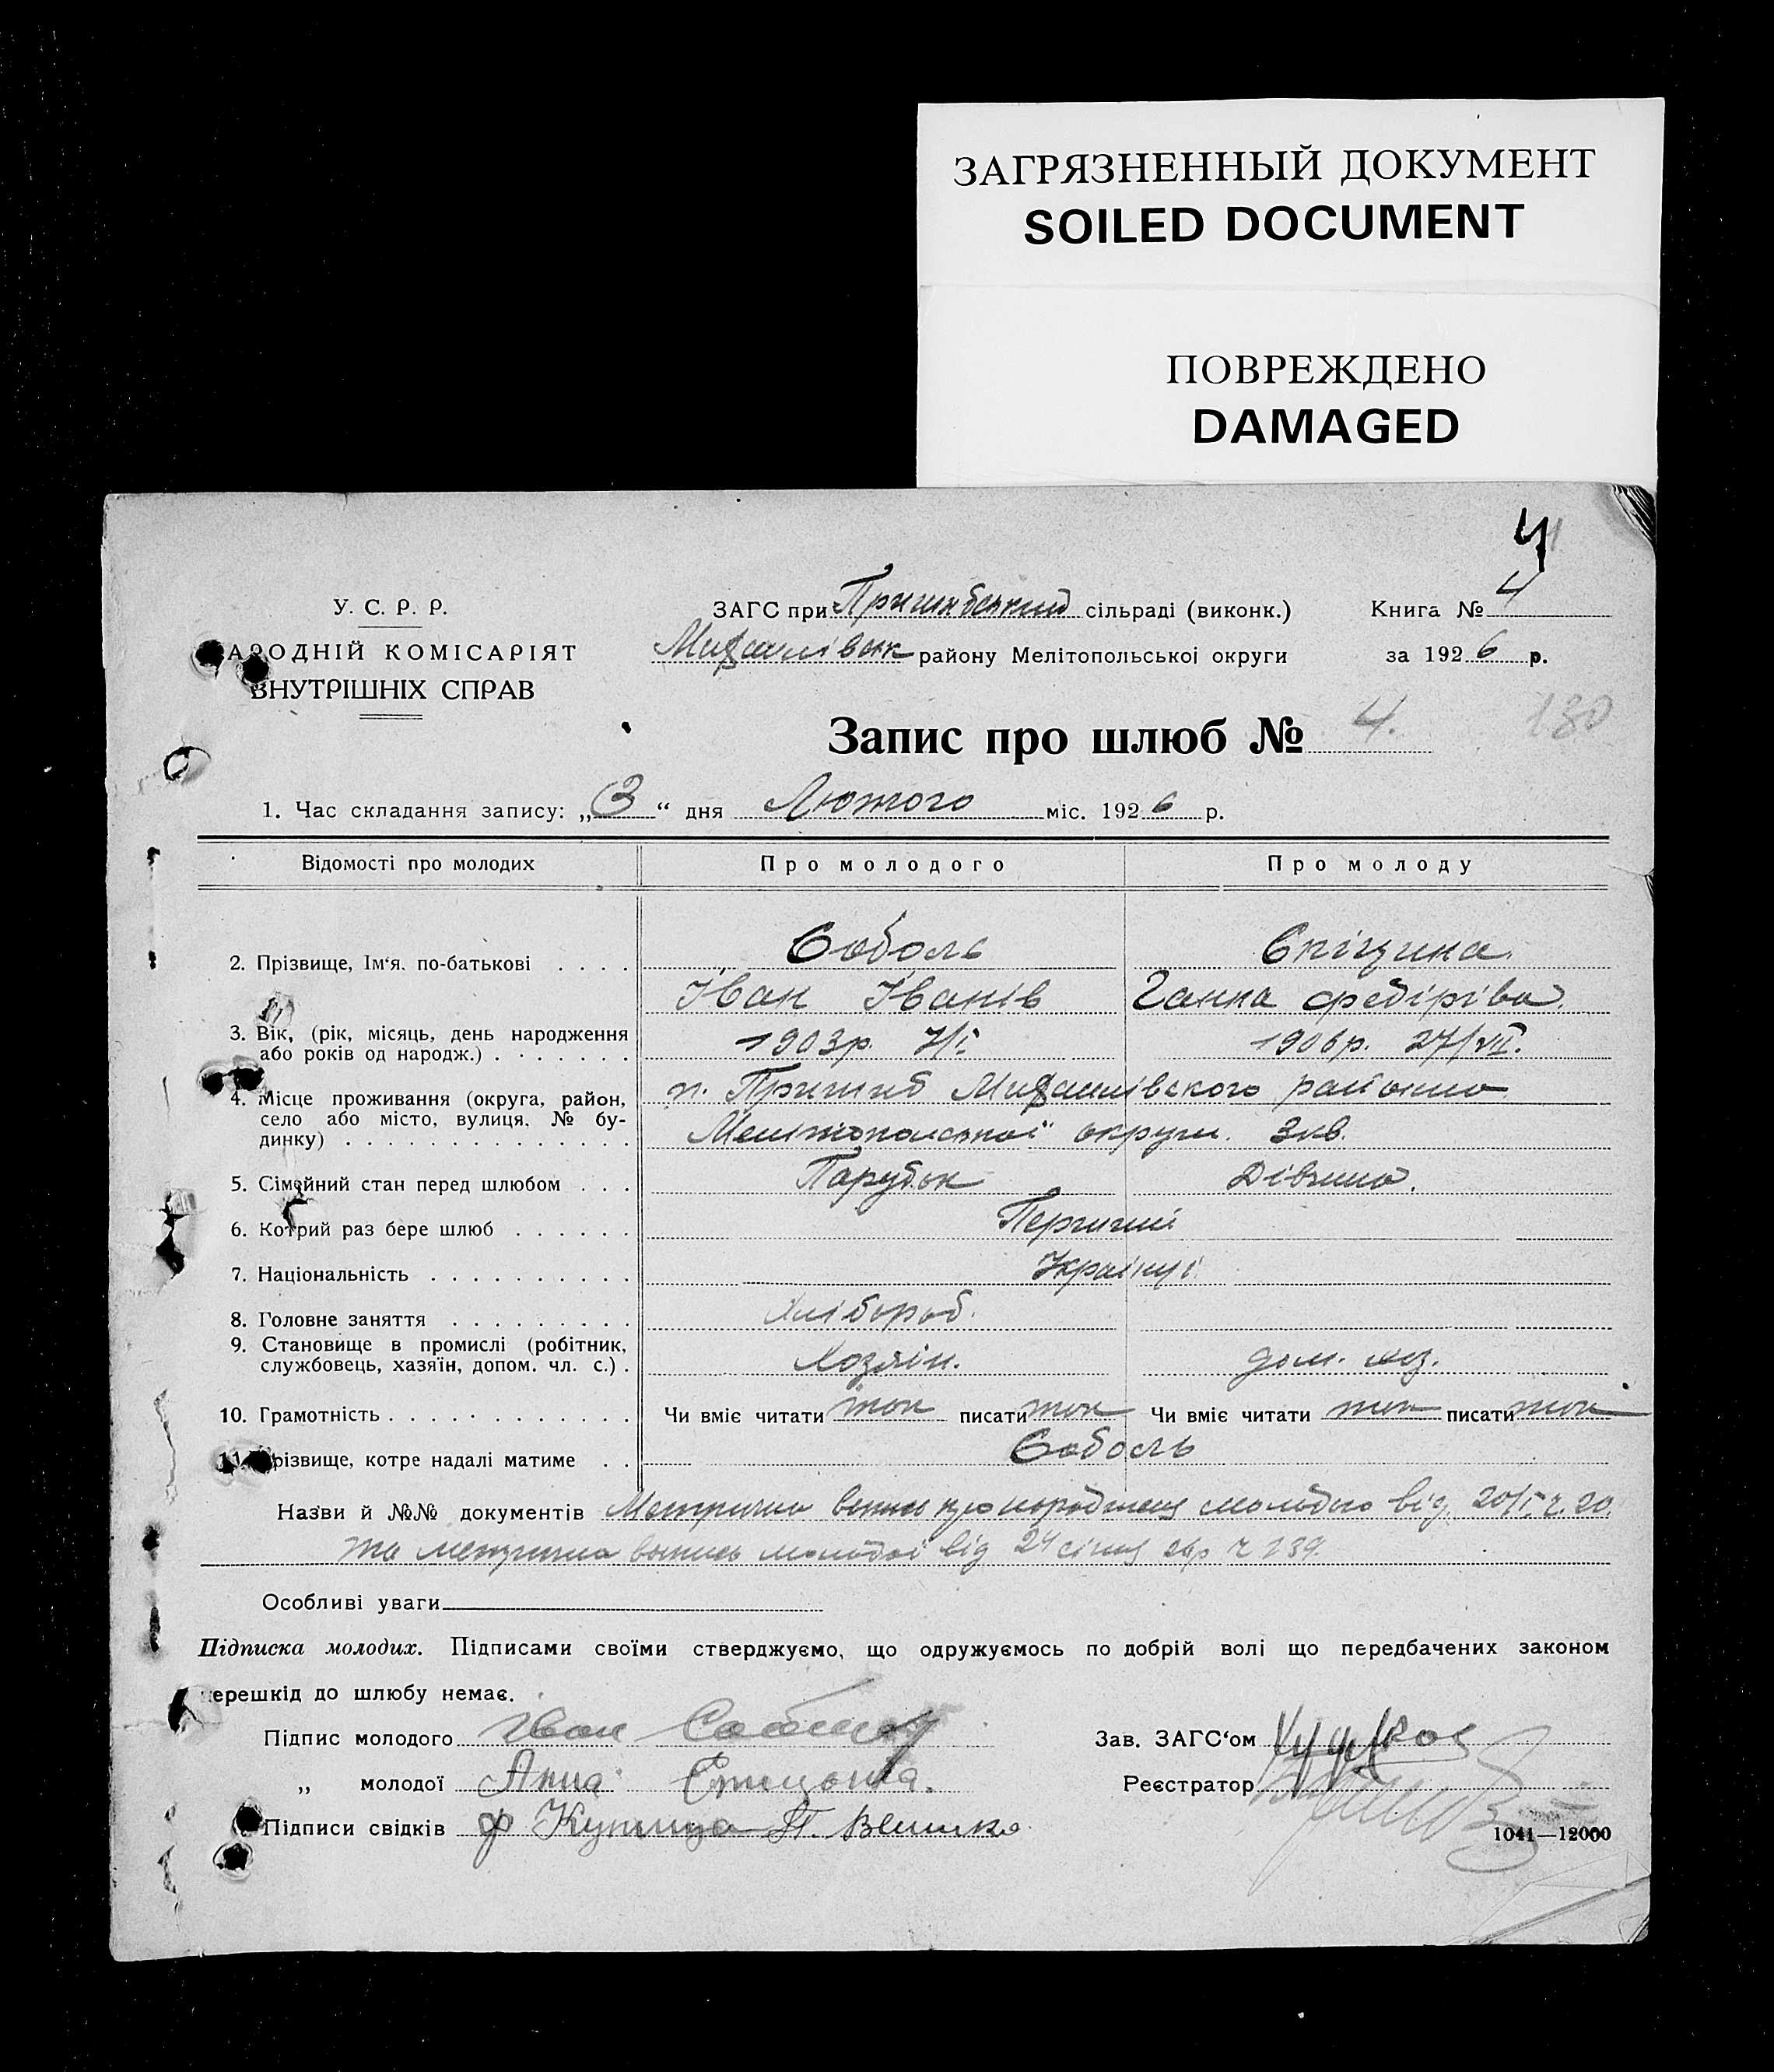 ЗАГРЯЗНЕННЫЙ ДОКУМЕНТ
SOILED DOCUMENT
ПОВРЕЖДЕНО
DAMAGED
4
У. С. Р. Р.
АРОДНІЙ КОМІСАРІЯТ
ВНУТРІШНІХ СПРАВ
ЗАГС при Пришибський сільраді (виконк.)
Михайлівськ району Мелітопольської округи
Книга № 4
за 1926 р.
Запис про шлюб № 4.
130
1. Час складання запису: „3“ дня Лютого міс. 1926 р.
Відомості про молодих Про молодого Про молоду
2. Прізвище, Ім'я. по-батькові . . . . Соболь Спіцина.
Іван Іванів Ганна Федірівa.
3. Вік, (рік, місяць, день народження
або років од народж.) . . . . . . . 1903р. 7/I. 1906р. 27/VII.
4. Місце проживання (округа, район,
село або місто, вулиця, № бу-
динку) . . . . . . . . . . . . . . .
п. Пришиб Михайлівського району
Мелітопольської округи.
5. Сімейний стан перед шлюбом . . . Парубок Дівчина.
6. Котрий раз бере шлюб . . . . . . Перший
7. Національність . . . . . . . . . . Українці
8. Головне заняття . . . . . . . . . Хлібороб.
9. Становище в промислі (робітник,
службовець, хазяїн, допом. чл. с.) . Хозяїн. дом. хоз.
10. Грамотність . . . . . . . . . . . . Чи вміє читати так писати так Чи вміє читати так писати так
11. різвище, котре надалі матиме . . Соболь
Назви й №№ документів Метрична випись про народження молодого від 20/I ч. 20.
та метрична випись молодої від 24 січня 26р ч 139.
Особливі уваги
Підписка молодих. Підписами своїми стверджуємо, що одружуємось по добрій волі що передбачених законом
ерешкід до шлюбу немає.
Підпис молодого Іван Соболь
„ молодої Анна Спицына.
Підписи свідків Ф Куница П. Велика
Зав. ЗАГС'ом
Реєстратор
1041—12000